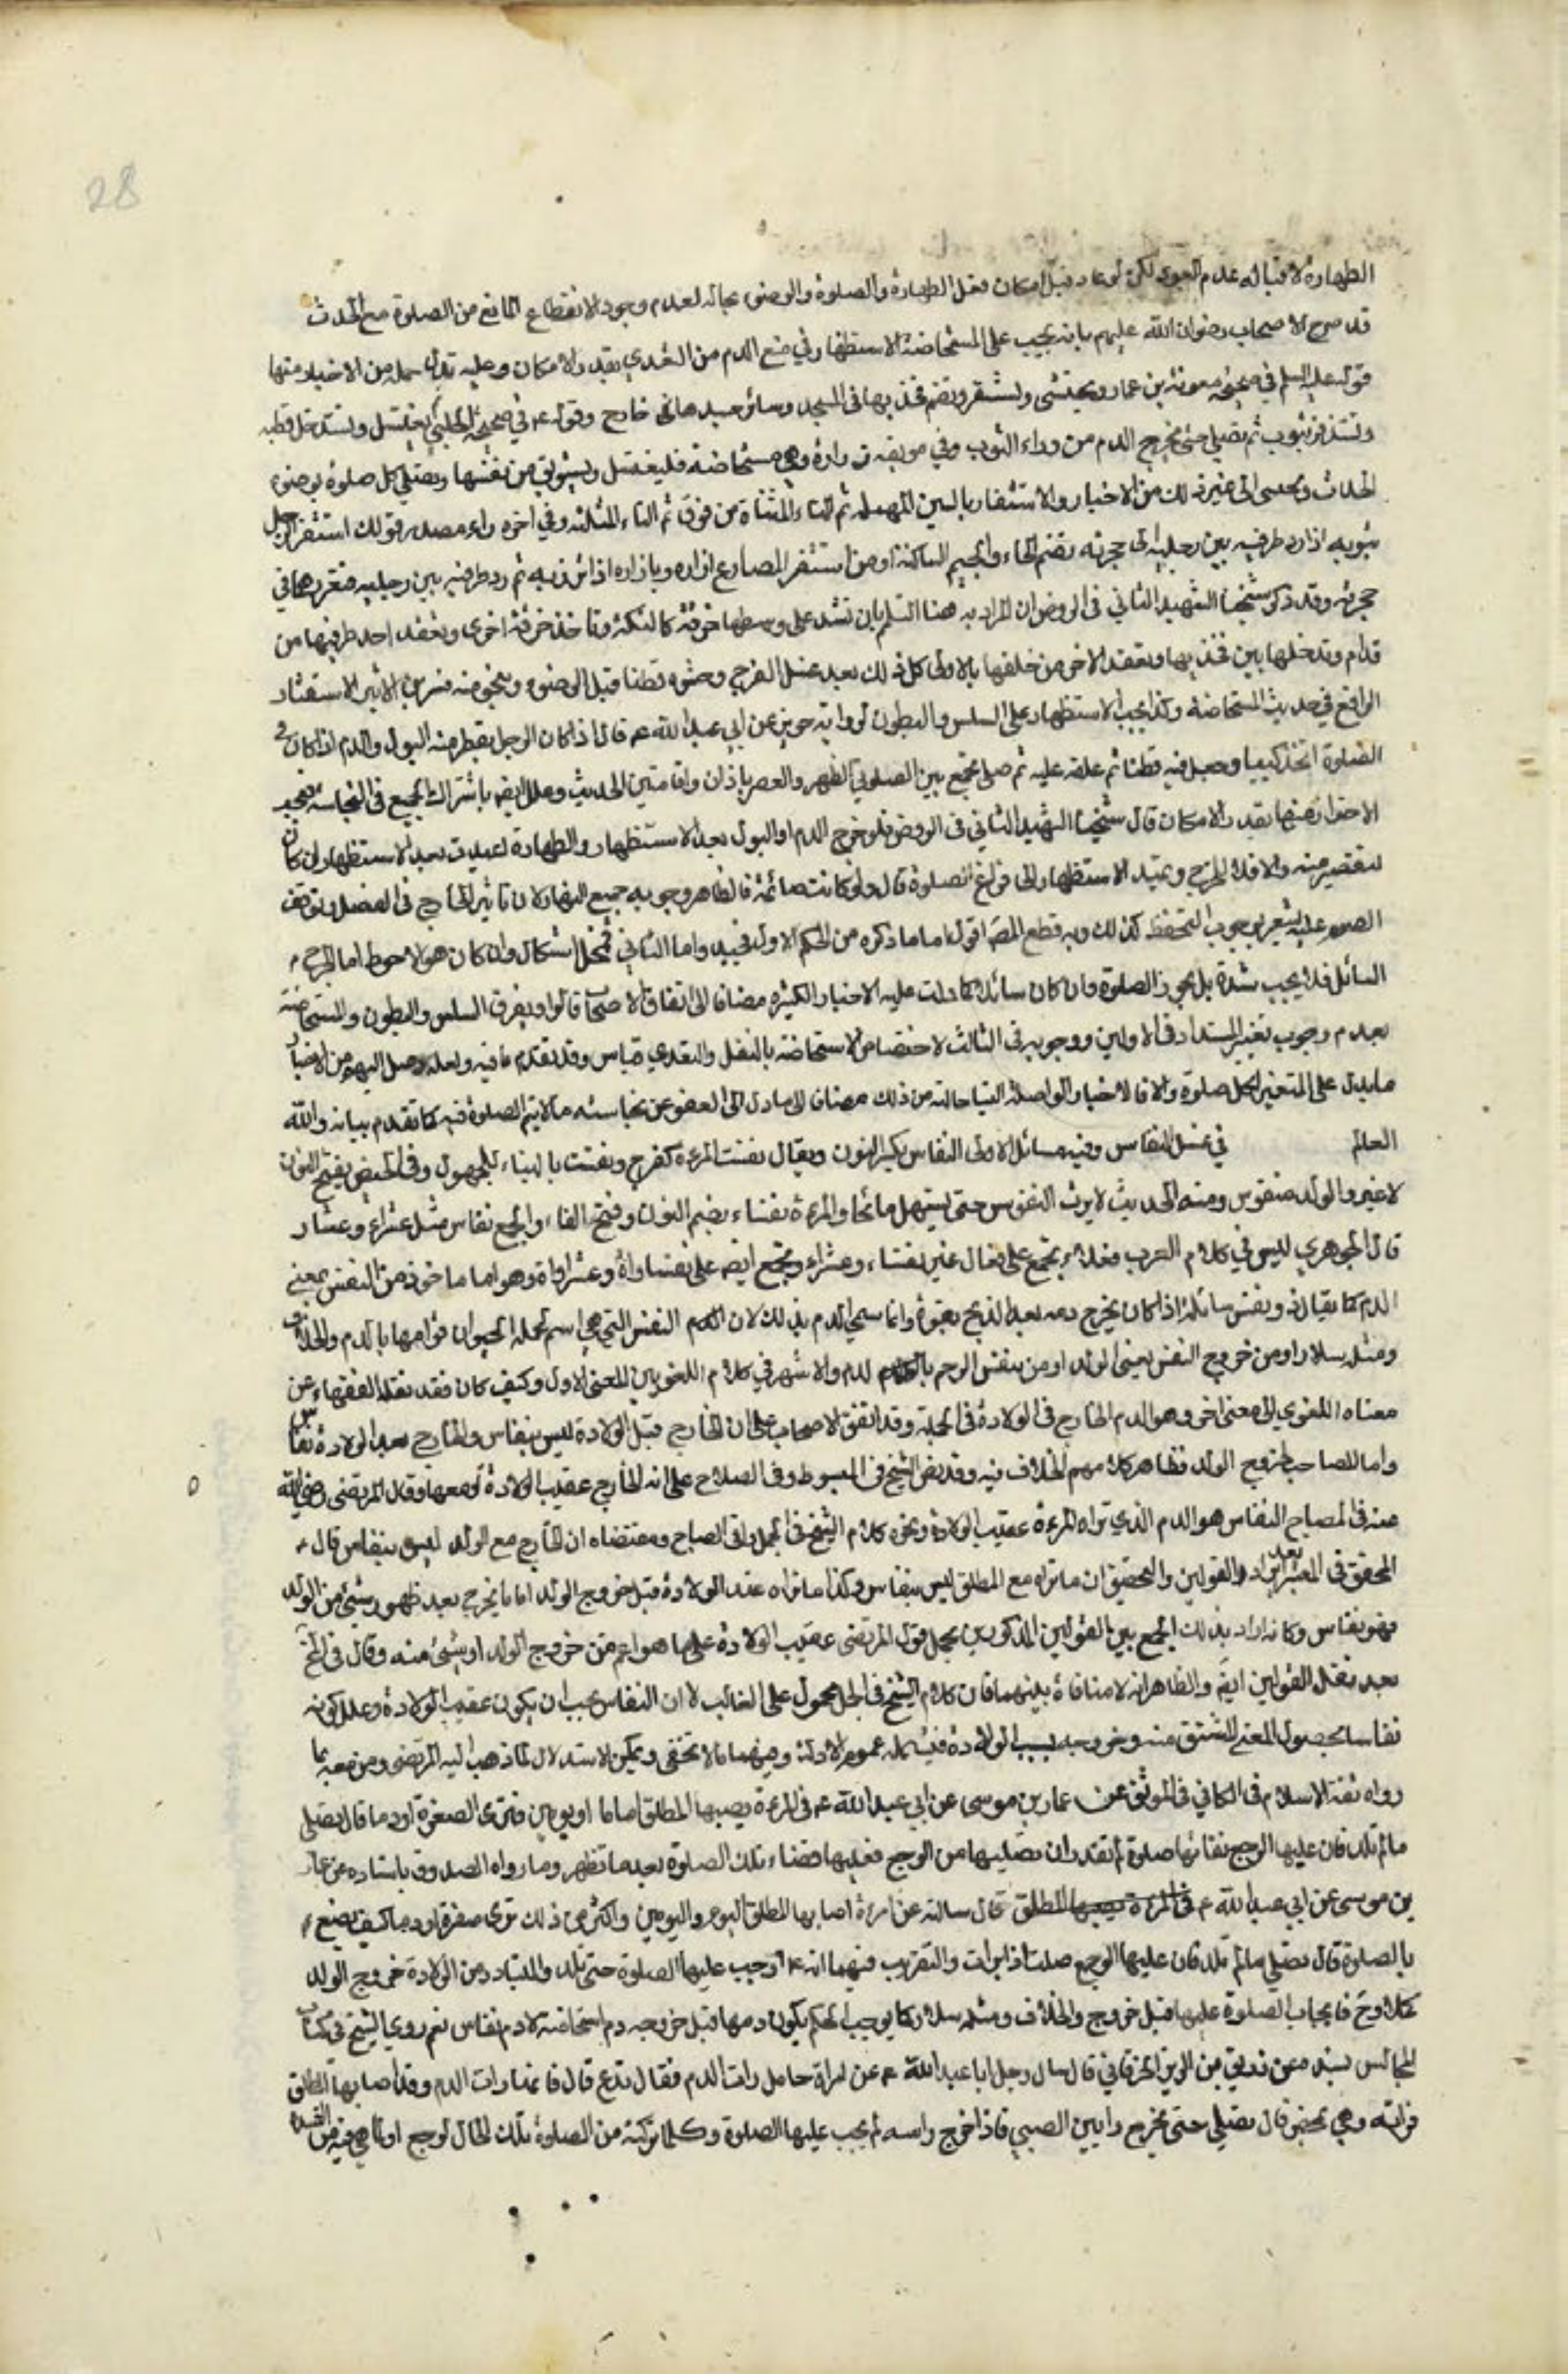 28
الطهارة لا قباله عدم العود لكن لو عاد قبل امكان فعل الطهارة والصلوة والوضوء بحاله لعدم وجود الانقطاع المانع من الصلوة مع الحدث
قد صرح الاصحاب رضوان الله عليهم بانه يجب على المستحاضة الاستظهار في منع الدم من التعدي بقدر الامكان وعليه تدل جملة من الاخبار منها
قوله عليه السلم في صحيحة معوية بن عمار وتحتشى وتستثفر وتضم فخذيها في المسجد وسائر جسدها خارج وقوله ع في صحيحة الحلبي تغتسل وتستدخل قطنه
وتستذفر بثوب ثم تصلي حتى يخرج الدم من وراء الثوب وفي موثقة زرارة وهي مستحاضة فليغتسل وليستوثق من نفسها وتصلي كل صلوة بوضوء
الحدث الى غير ذلك من الاخبار والاستثفار بالسين المهملة ثم التاء المثناة من فوق ثم الثاء المثلثة وفي اخره راء مصدر قولك استثفر الرجل
بثوبه اذا رد طرفيه بين رجليه الى حجزته بضم الحاء والجيم الساكنة او من استثفر المصارع ازاره وبازاره اذا اتزر به ثم رد طرفيه بين رجليه فغرزهما في
حجزته وقد ذكر شيخنا الشهيد الثاني في الروض ان المراد به هنا التلجم بان تشد على وسطها خرقة كالتكة وتاخذ خرقة اخرى وتعقد احد طرفيها من
قدام وتدخلها بين فخذيها وتعقد الاخر من خلفها بالاولى كل ذلك بعد غسل الفرج وحشوه قطنا قبل الوضوء وبنحو منه فسر ابن الاثير الاستثفار
الواقع في حديث المستحاضة وكذا يجب الاستظهار على السلس والمبطون لرواية حريز عن ابي عبد الله ع قال اذا كان الرجل يقطر منه البول والدم اذا كان ح
الصلوة اتخذ كيسا وجعل فيه قطنا ثم علقه عليه ثم صلى يجمع بين الصلوتين الظهر والعصر باذان واقامتين الحديث وعلل ايضا باشتراك الجميع في النجاسة فيجب
الاحتراز منها بقدر الامكان قال شيخنا الشهيد الثاني في الروض فلو خرج الدم او البول بعد الاستظهار والطهارة اعيدت بعد الاستظهار ان كان
لتقصير منه والا فلا للحرج ويمتد الاستظهار الى فراغ الصلوة قال ولو كانت صائمة فالظاهر وجوبه جميع النهار لان تاثير الخارج في الغسل وتوقف
الصوم عليه يشعر بوجوب التحفظ كذلك وبه قطع المصنف اقول اما ما ذكره من الحكم الاول فجيد واما الثاني فمحل اشكال وان كان هو الاحوط اما الجرح
السائل فلا يجب شدة بل يجوز الصلوة وان كان سائلا كما دلت عليه الاخبار الكثيرة مضافا الى اتفاق الاصحاب قالوا ويفرق السلس والمبطون والمستحاضة
بعدم وجوب تغيير الشداد في الاولين ووجوبه في الثالث لاختصاص الاستحاضة بالنقل والتعدي قياس وقد تقدم ما فيه ولعله وصل اليهم من الاخبار
ما يدل على التغيير لكل صلوة والا فالاخبار الواصلة الينا خالية من ذلك مضافا الى ما دل على العفو عن نجاسة ما لا يتم الصلوة فيه كما تقدم بيانه والله
العالم في غسل النفاس وفيه مسائل الاولى النفاس بكسر النون ويقال نفست المرءة كفرح ونفست بالبناء للمجهول وفي الحيض بفتح النون
لا غير والولد منفوس ومنه الحديث لا يرث المنفوس حتى يستهل صائحا والمرءة نفساء بضم النون وفتح الفاء والجمع نفاس مثل عشراء وعشار
قال الجوهري ليس في كلام العرب فعلاء يجمع على فعال غير نفساء وعشراء ويجمع ايضا على نفساوات وعشراوات وهو اما ماخوذ من النفس بمعنى
الدم كما يقال ذو نفس سائلة اذا كان يخرج دمه بعد الذبح بقوة وانما سمي الدم بذلك لان النفس التي هي اسم لجملة الحيوان قوامها بالدم والخلاف
ومثله سلار او من خروج النفس يعني الولد او من تنفس الرحم بالدم والاشهر في كلام اللغويين المعنى الاول وكيف كان فقد نقله الفقهاء عن
معناه اللغوي الى معنى اخر وهو الدم الخارج في الولادة في الجملة وقد اتفق الاصحاب على ان الخارج قبل الولادة ليس بنفاس والخارج بعد الولادة نفاس
واما المصاحب لخروج الولد فظاهر كلامهم الخلاف فيه وقد نص الشيخ في المبسوط وفي الصلاح على انه الخارج عقيب الولادة او معها وقال المرتضى رضي الله
عنه في المصباح النفاس هو الدم الذي تراه المرءة عقيب الولادة ونحوه كلام الشيخ في الجمل وفي المصباح ومقتضاه ان الخارج مع الولد ليس بنفاس قال
المحقق في المعتبر بعد ايراد القولين والتحقيق ان ما تراه مع الطلق ليس بنفاس وكذا ما تراه عند الولادة قبل خروج الولد اما ما يخرج بعد ظهور شئ من الولد
فهو نفاس وكانه اراد بذلك الجمع بين القولين المذكورين بحمل قول المرتضى عقيب الولادة على ما هو اعم من خروج الولد او شئ منه وقال في
بعد نقل القولين ايضا والظاهر انه لا منافاة بينهما فان كلام الشيخ في الجمل محمول على الغالب لا ان النفاس يجب ان يكون عقيب الولادة وعلل كونه
نفاسا بحصول المعنى المشتق منه وخروجه بسبب الولادة فيشمله عموم الادلة وفيهما ما لا يخفى ويمكن الاستدلال لما ذهب اليه المرتضى ومن معه بما
رواه ثقة الاسلام في الكافي في الموثق عن عمار بن موسى عن ابي عبد الله ع في المرءة يصيبها الطلق اياما او يومين فترى الصفرة او دما قال تصلي
ما لم تلد فان غلبها الوجع ففاتها صلوة لم تقدر ان تصليها من الوجع فعليها قضاء تلك الصلوة بعد ما تطهر وما رواه الصدوق باسناده عن عمار
بن موسى عن ابي عبد الله ع قال سالته عن امرءة اصابها الطلق اليوم واليومين واكثر من ذلك ترى صفرة او دما كيف تصنع
بالصلوة قال تصلي ما لم تلد فان غلبها الوجع صلت اذا برات والتقريب فيهما انه ع اوجب عليها الصلوة حتى تلد والمتبادر من الولادة خروج الولد
كملا وح فايجاب الصلوة عليها قبل خروج والخلاف ومثله سلار كما يوجب الحكم بكون دمها قبل خروجه دم استحاضة لا دم نفاس نعم روى الشيخ في كتاب
المجالس بسنده عن زريق بن الزبير الخرقاني قال سال رجل ابا عبد الله ع عن امراة حامل رات الدم فقال تدع قال فانها رات الدم وقد اصابها الطلق
فراته وهي تمخض قال تصلي حتى يخرج راس الصبي فاذا خرج راسه لم يجب عليها الصلوة وكلما تركته من الصلوة تلك الحال لوجع او لما هي فيه من الشدة